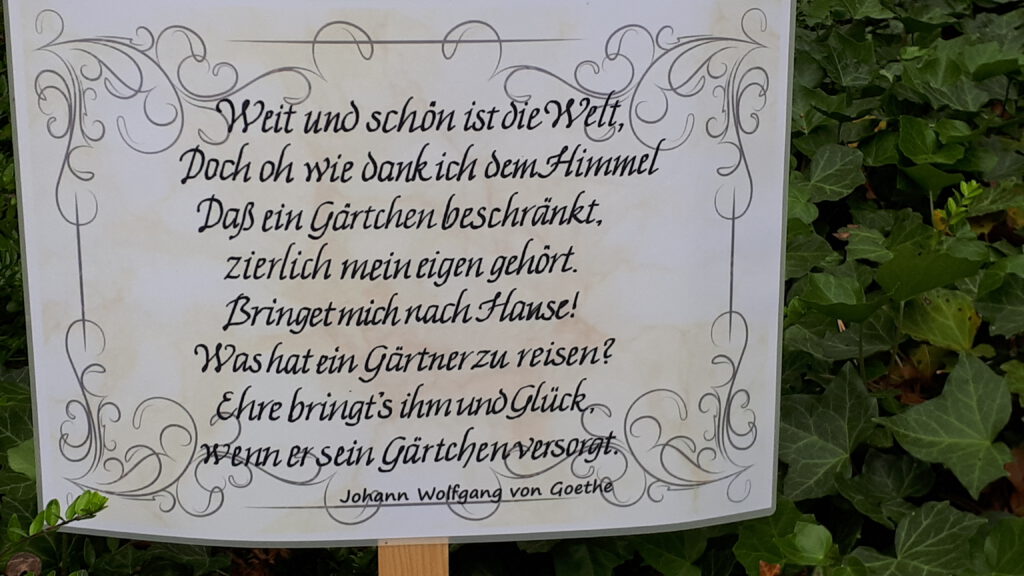 Weit und schön ist die Welt,
Doch oh wie dank ich dem Himmel
Daß ein Gärtchen beschränkt,
zierlich mein eigen gehört.
Bringet mich nach Hause!
Was hat ein Gärtner zu reisen?
Ehre bringt's ihm und Glück,
wenn er sein Gärtchen versorgt.
Johann Wolfgang von Goethe